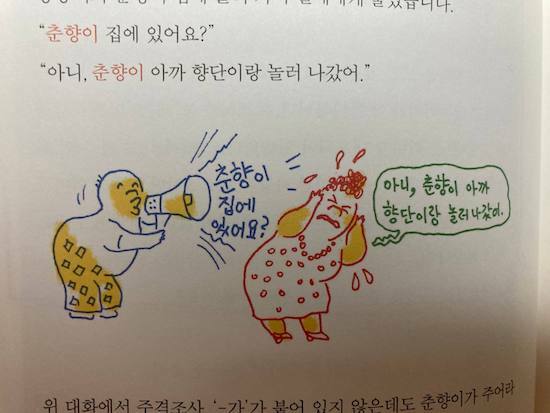 물었습니다.
“춘향이 집에 있어요?”
“아니, 춘향이 아까 향단이랑 놀러 나갔어.”
춘향이
집에
있어요?
아니, 춘향이 아까
향단이랑 놀러 나갔어.
위 대화에서 주격조사 ‘-가’가 붙어 있지 않은데도 춘향이가 주어라